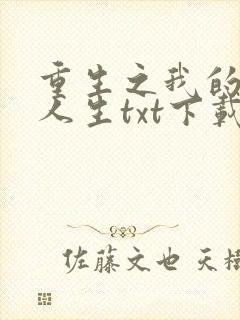 重生之我的
人生txt下载
佐藤文也 天樹